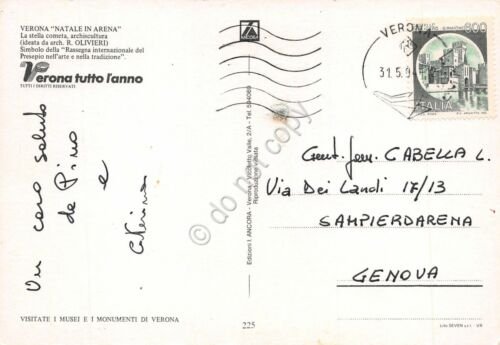 VERONA "NATALE IN ARENA"
La stella cometa, archiscultura
(ideata da arch. R. OLIVIERI)
Simbolo della "Rassegna internazionale del
Presepio nell'arte e nella tradizione".
Verona tutto l'anno
TUTTI I DIRITTI RISERVATI
Un caro saluto
da Pino
e
Caterina
VISITATE I MUSEI E I MONUMENTI DI VERONA
225
Edizioni I. ANCORA - Verona - Vicoletto Valle, 2/A - Tel. 594069
Riproduzione vietata
do not copy
VERONA
31.5.9
600
ITALIA
Gent. Fam. CABELLA L.
Via Dei Landi 17/13
SAMPIERDARENA
GENOVA
Lito SEVEN s.r.l. - VR